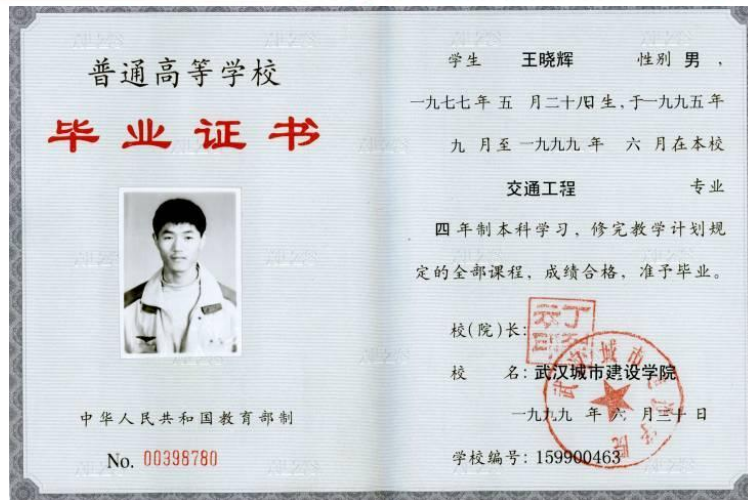 普通高等学校
毕业证书
中华人民共和国教育部制
No. 00398780
学生 王晓辉 性别 男，
一九七七年 五 月二十八日生，于一九九五年
九 月至一九九九 年 六 月在本校
交通工程 专业
四 年制本科学习，修完教学计划规
定的全部课程，成绩合格，准予毕业。
校(院)长：
校 名：武汉城市建设学院
一九九九 年 六 月三十 日
学校编号：159900463